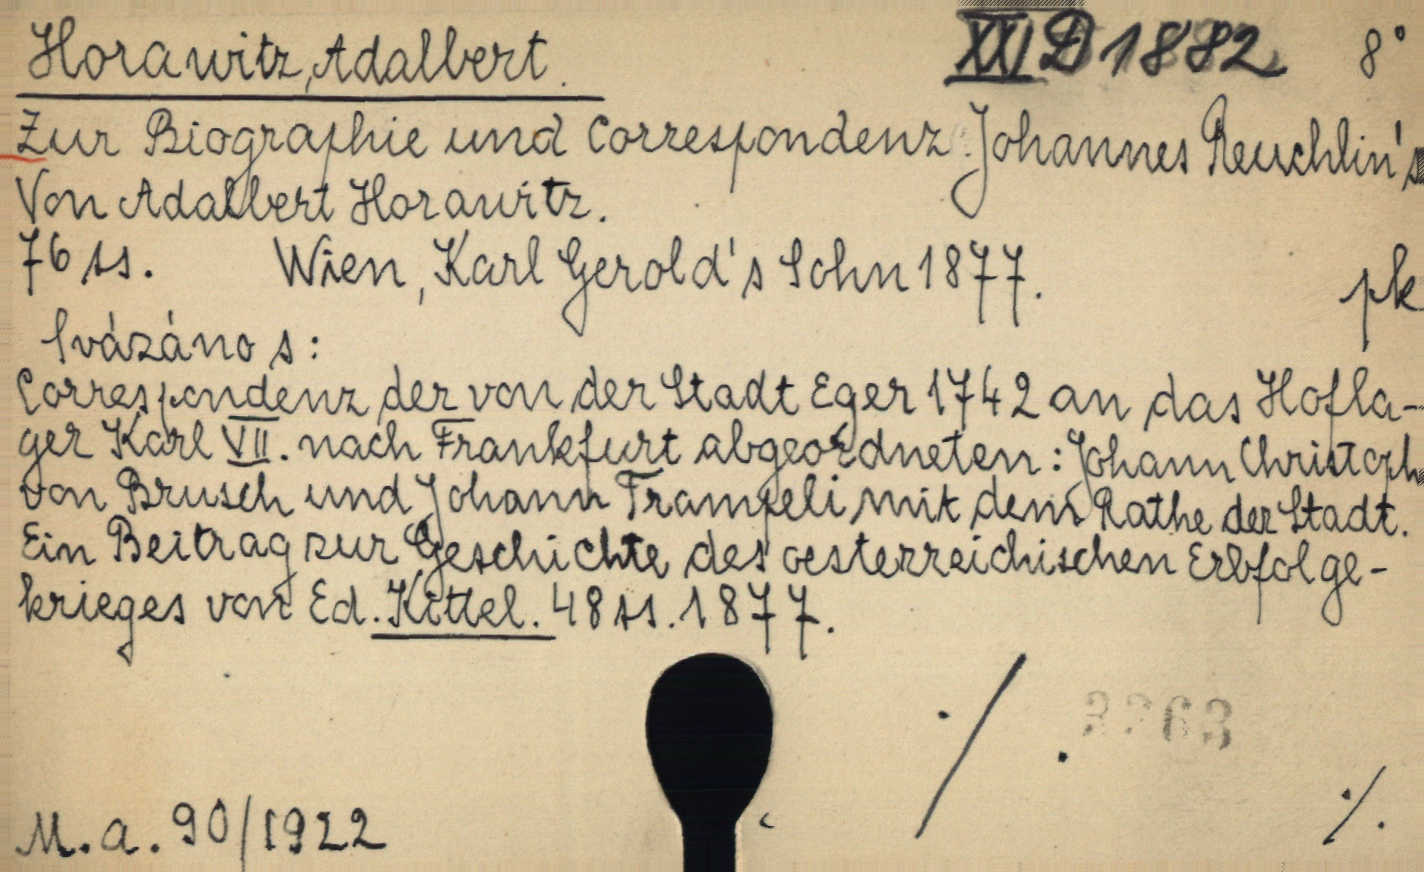 Horawitz, Adalbert.
XXI D 1882 8°
Zur Biographie und Correspondenz Johannes Reuchlin's
Von Adalbert Horawitz.
76 ss. Wien, Karl Gerold's Sohn 1877. pk
Svázáno s:
Correspondenz der von der Stadt Eger 1742 an das Hofla-
ger Karl VII. nach Frankfurt abgeordneten: Johann Christoph
von Brusch und Johann Trampeli mit dem Rathe der Stadt.
Ein Beitrag zur Geschichte des oesterreichischen Erbfolge-
krieges von Ed. Kittel. 48 ss. 1877.
./.
./.
M.a. 90/1922